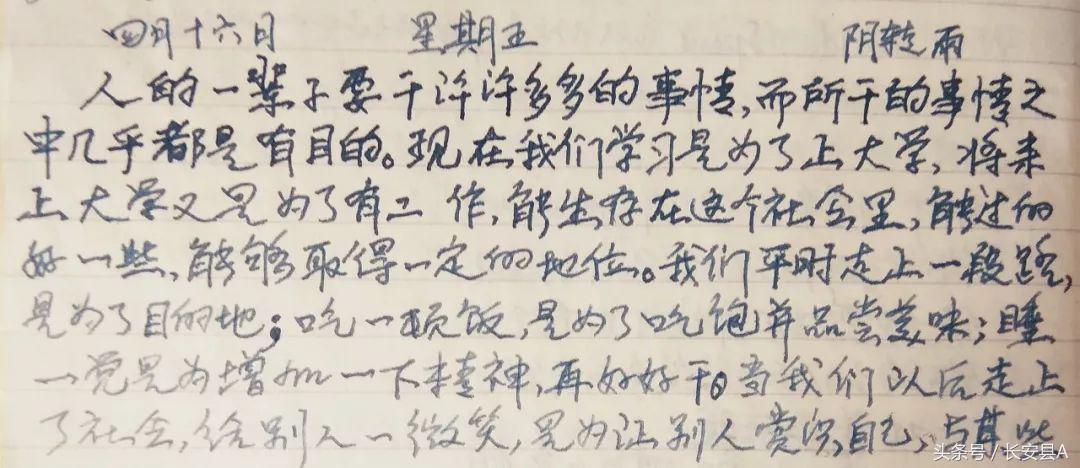 四月十六日 星期五 阴转雨
人的一辈子要干许许多多的事情,而所干的事情之
中几乎都是有目的。现在我们学习是为了上大学,将来
上大学又是为了有工作,能生存在这个社会里,能过的
好一些,能够取得一定的地位。我们平时走上一段路,
是为了目的地;吃一顿饭,是为了吃饱并品尝美味;睡
一觉是为增加一下精神,再好好干。当我们以后走上
了社会,给别人一微笑,是为让别人赏识自己,与其此
头条号 / 长安县A